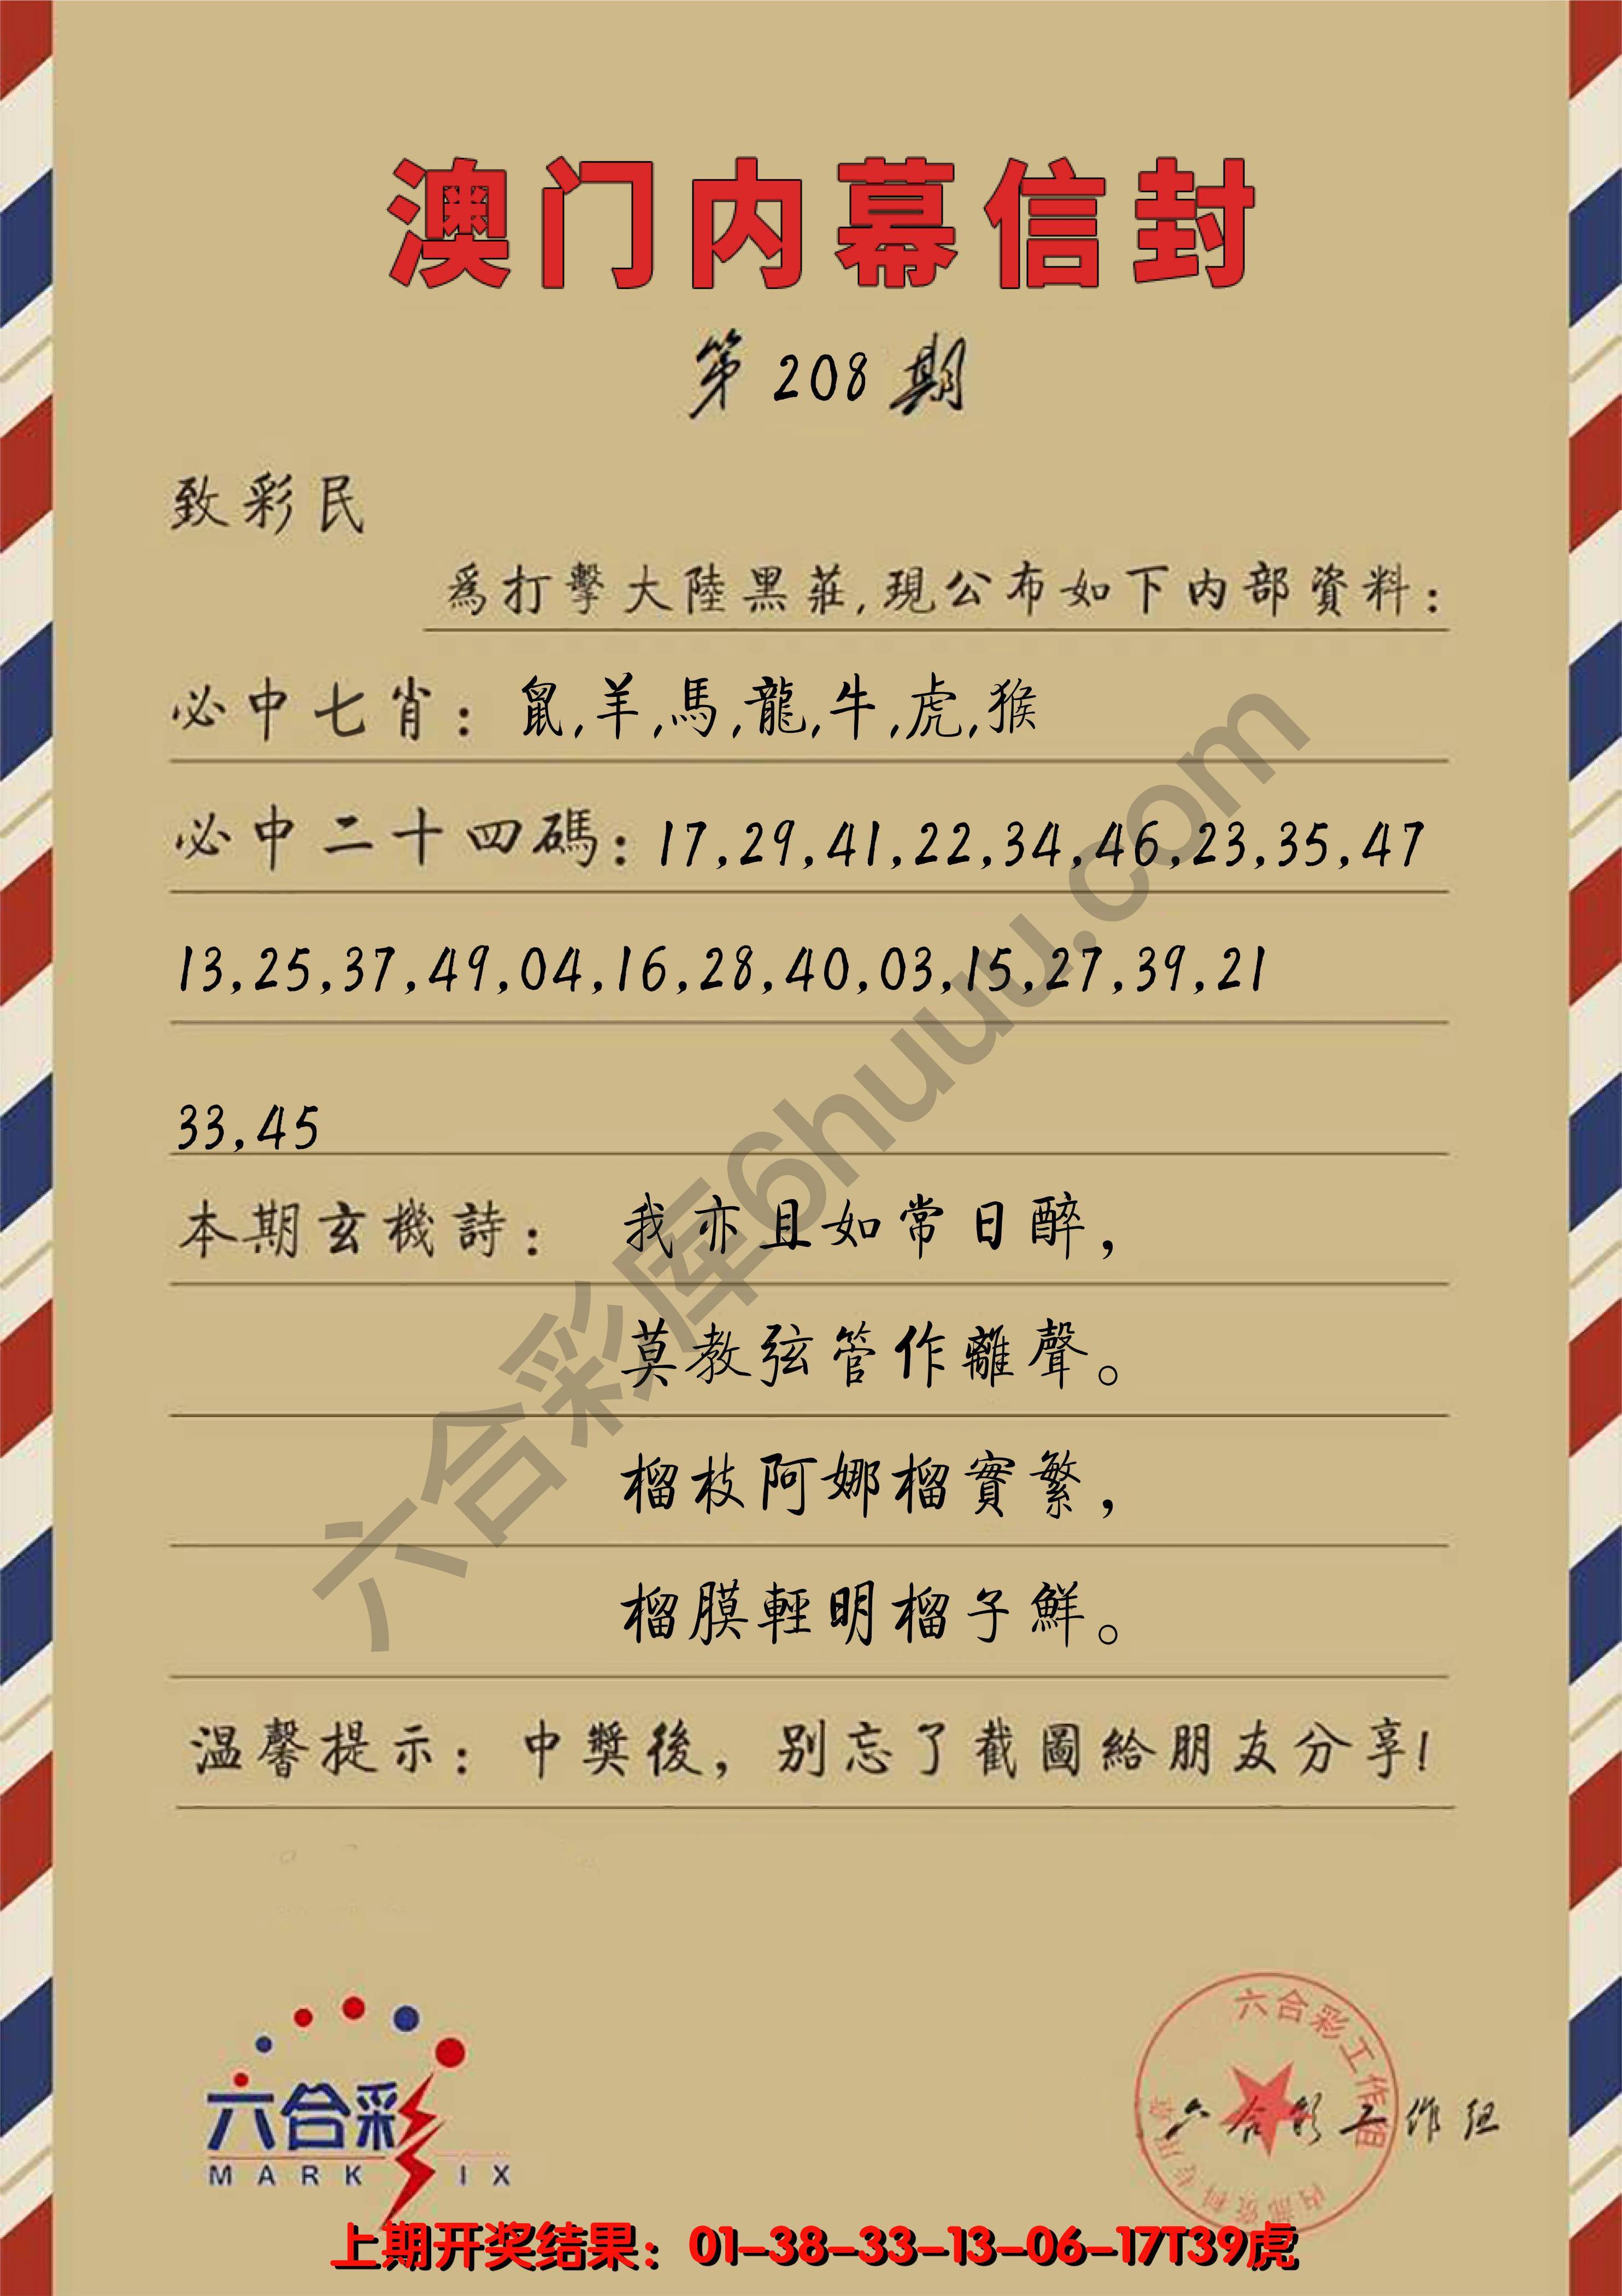 澳门内幕信封
第208期
致彩民
爲打擊大陸黑莊,現公布如下内部資料:
必中七肖: 鼠,羊,馬,龍,牛,虎,猴
必中二十四碼: 17,29,41,22,34,46,23,35,47
13,25,37,49,04,16,28,40,03,15,27,39,21
33,45
本期玄機詩: 我亦且如常日醉,
莫教弦管作離聲。
榴枝阿娜榴實繁,
榴膜輕明榴子鮮。
温馨提示: 中獎後, 别忘了截圖給朋友分享!
六合彩库6huuu.com
六合彩
MARK IX
六合彩工作组
内部资料专用章
六合彩工作组
上期开奖结果: 01-38-33-13-06-17T39虎